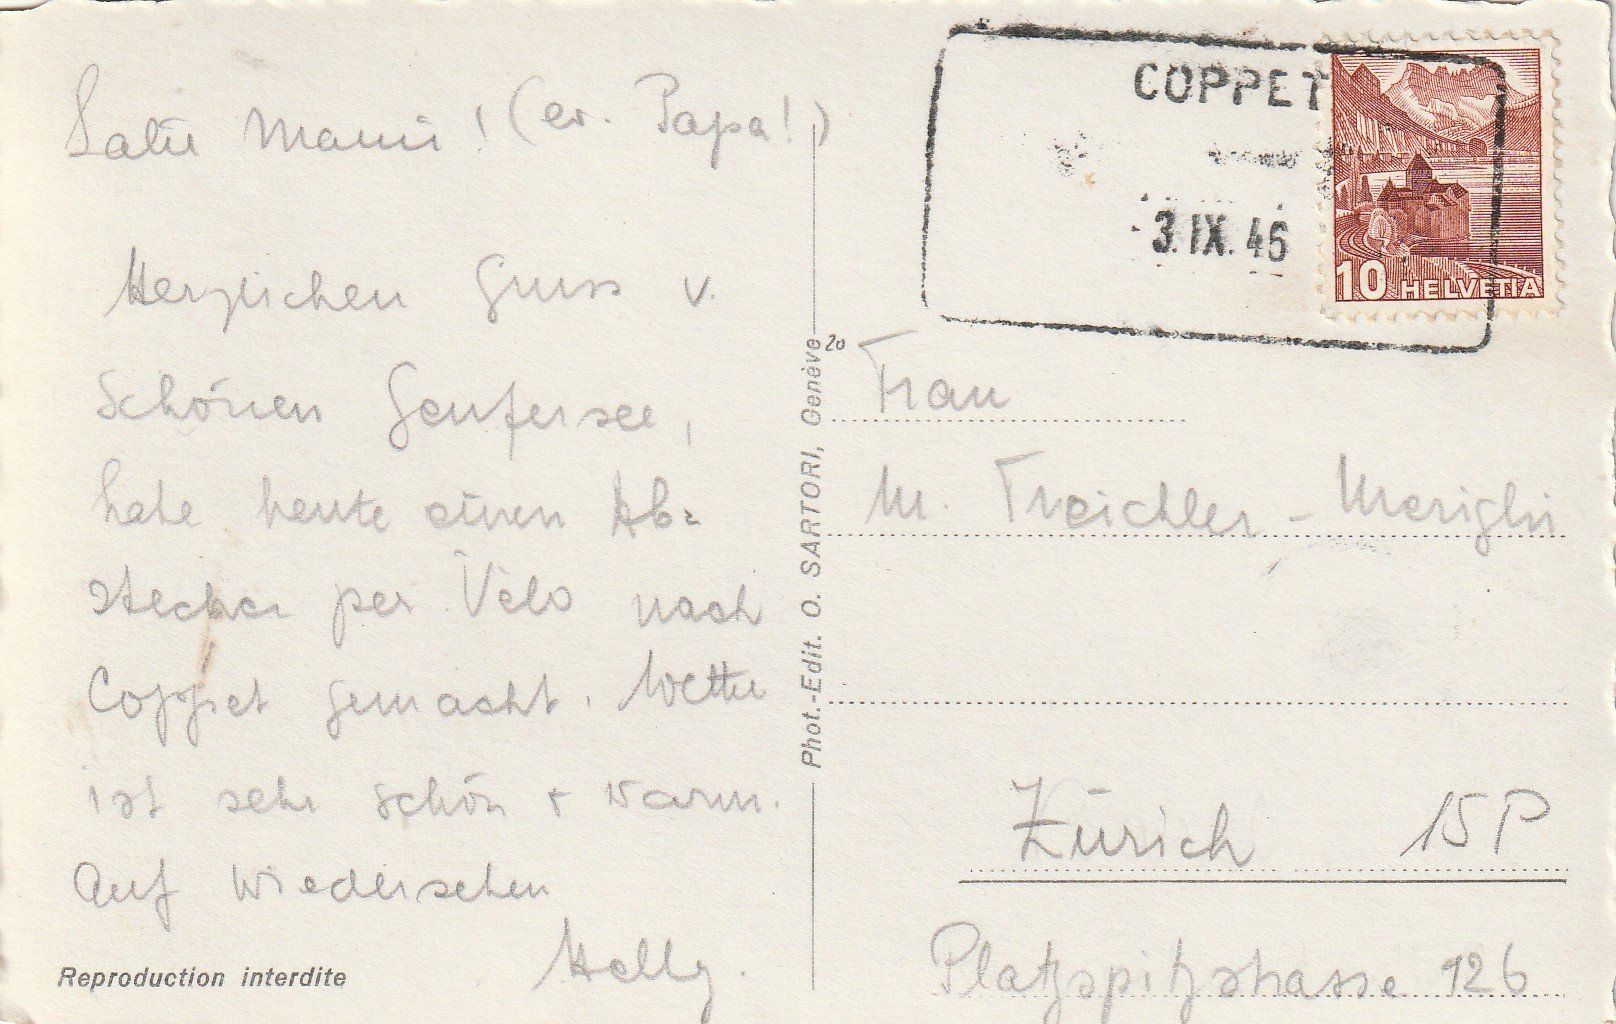 Salü Mami! (ev. Papa!)
Herzlichen Gruss v.
schönen Genfersee,
habe heute einen Ab=
stecher per Velo nach
Coppet gemacht. Wetter
ist sehr schön + warm.
Auf Wiedersehen
Helly.
Reproduction interdite
Phot.-Edit. O. SARTORI, Genève
20
COPPET
3.IX.46
10 HELVETIA
Frau
M. Treichler -
Zürich 15P
Platzspitzstrasse 126